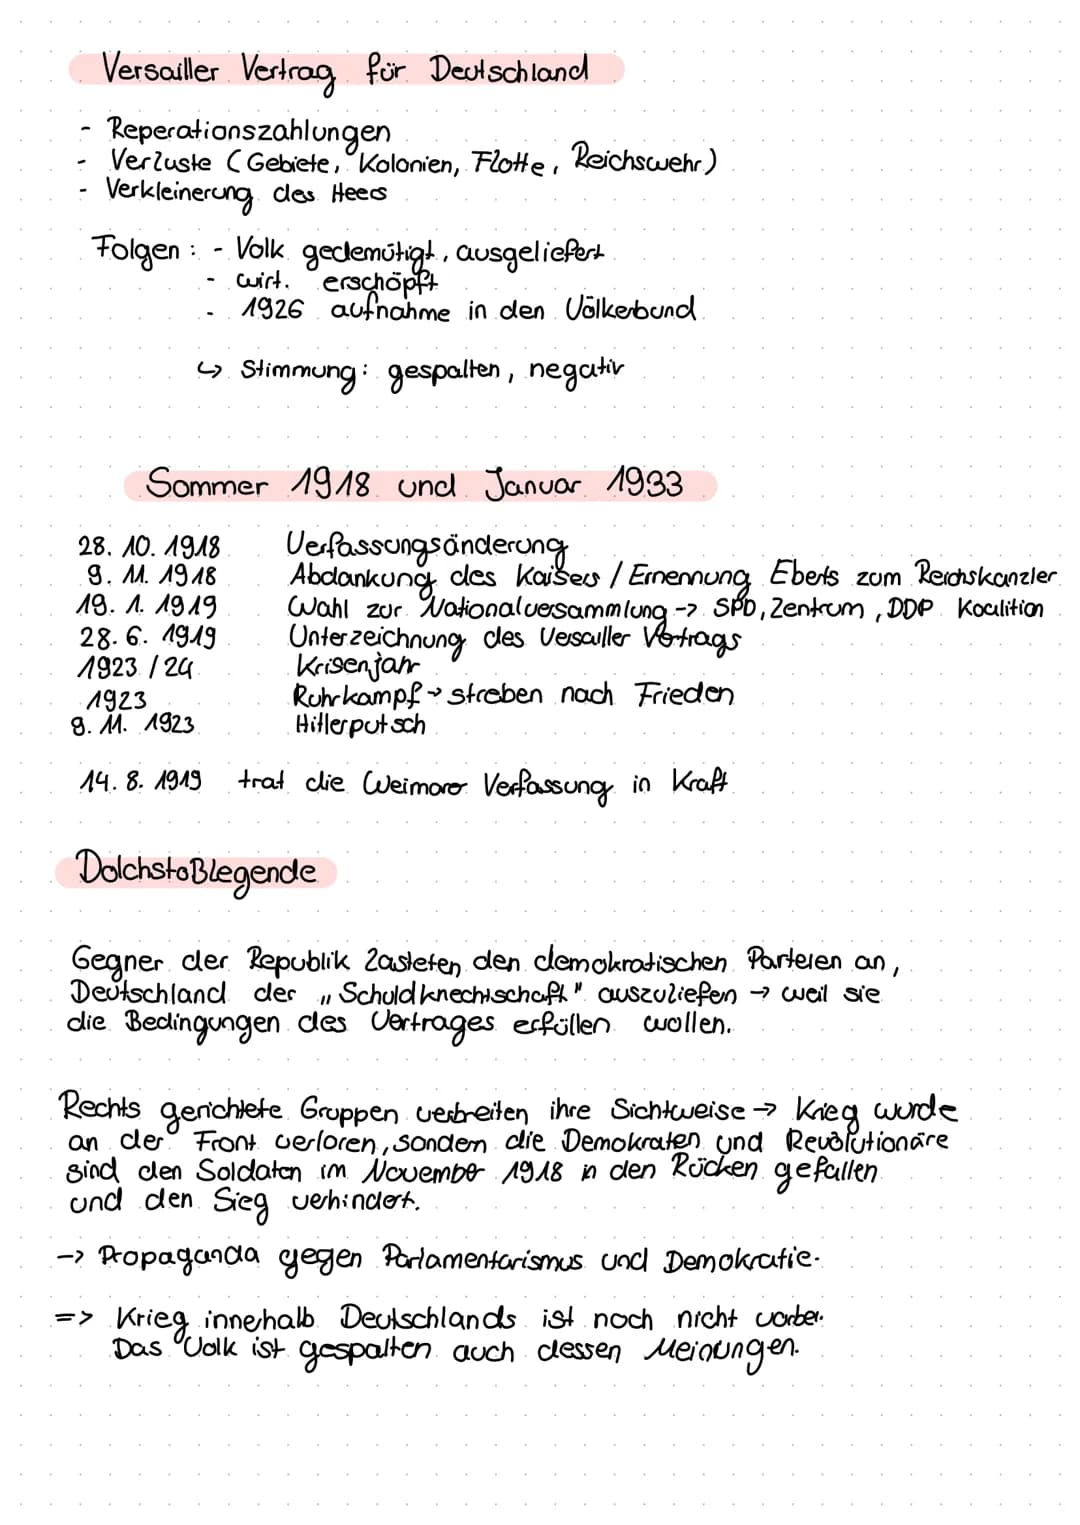 Versailler Vertrag für Deutschland
- Reperationszahlungen
- Verluste (Gebiete, Kolonien, Flotte, Reichswehr)
- Verkleinerung des Heers
Folgen: - Volk gedemütigt, ausgeliefert
- wirt. erschöpft
- 1926 aufnahme in den Völkerbund
↳ Stimmung: gespalten, negativ
Sommer 1918 und Januar 1933
28. 10. 1918 Verfassungsänderung
9. 11. 1918 Abdankung des Kaisers / Ernennung Eberts zum Reichskanzler
19. 1. 1919 Wahl zur Nationalversammlung -> SPD, Zentrum, DDP Koalition
28. 6. 1919 Unterzeichnung des Versailler Vertrags
1923 / 24 Krisenjahr
1923 Ruhrkampf → streben nach Frieden
9. 11. 1923 Hitlerputsch
14. 8. 1919 trat die Weimarer Verfassung in Kraft
Dolchstoßlegende
Gegner der Republik lasteten den demokratischen Parteien an,
Deutschland der „Schuldknechtschaft" auszuliefen → weil sie
die Bedingungen des Vertrages erfüllen wollen.
Rechts gerichtete Gruppen verbreiten ihre Sichtweise → Krieg wurde
an der Front verloren, sondern die Demokraten und Revolutionäre
sind den Soldaten im November 1918 in den Rücken gefallen
und den Sieg verhindert.
-> Propaganda gegen Parlamentarismus und Demokratie.
=> Krieg innerhalb Deutschlands ist noch nicht vorbei.
Das Volk ist gespalten auch dessen Meinungen.